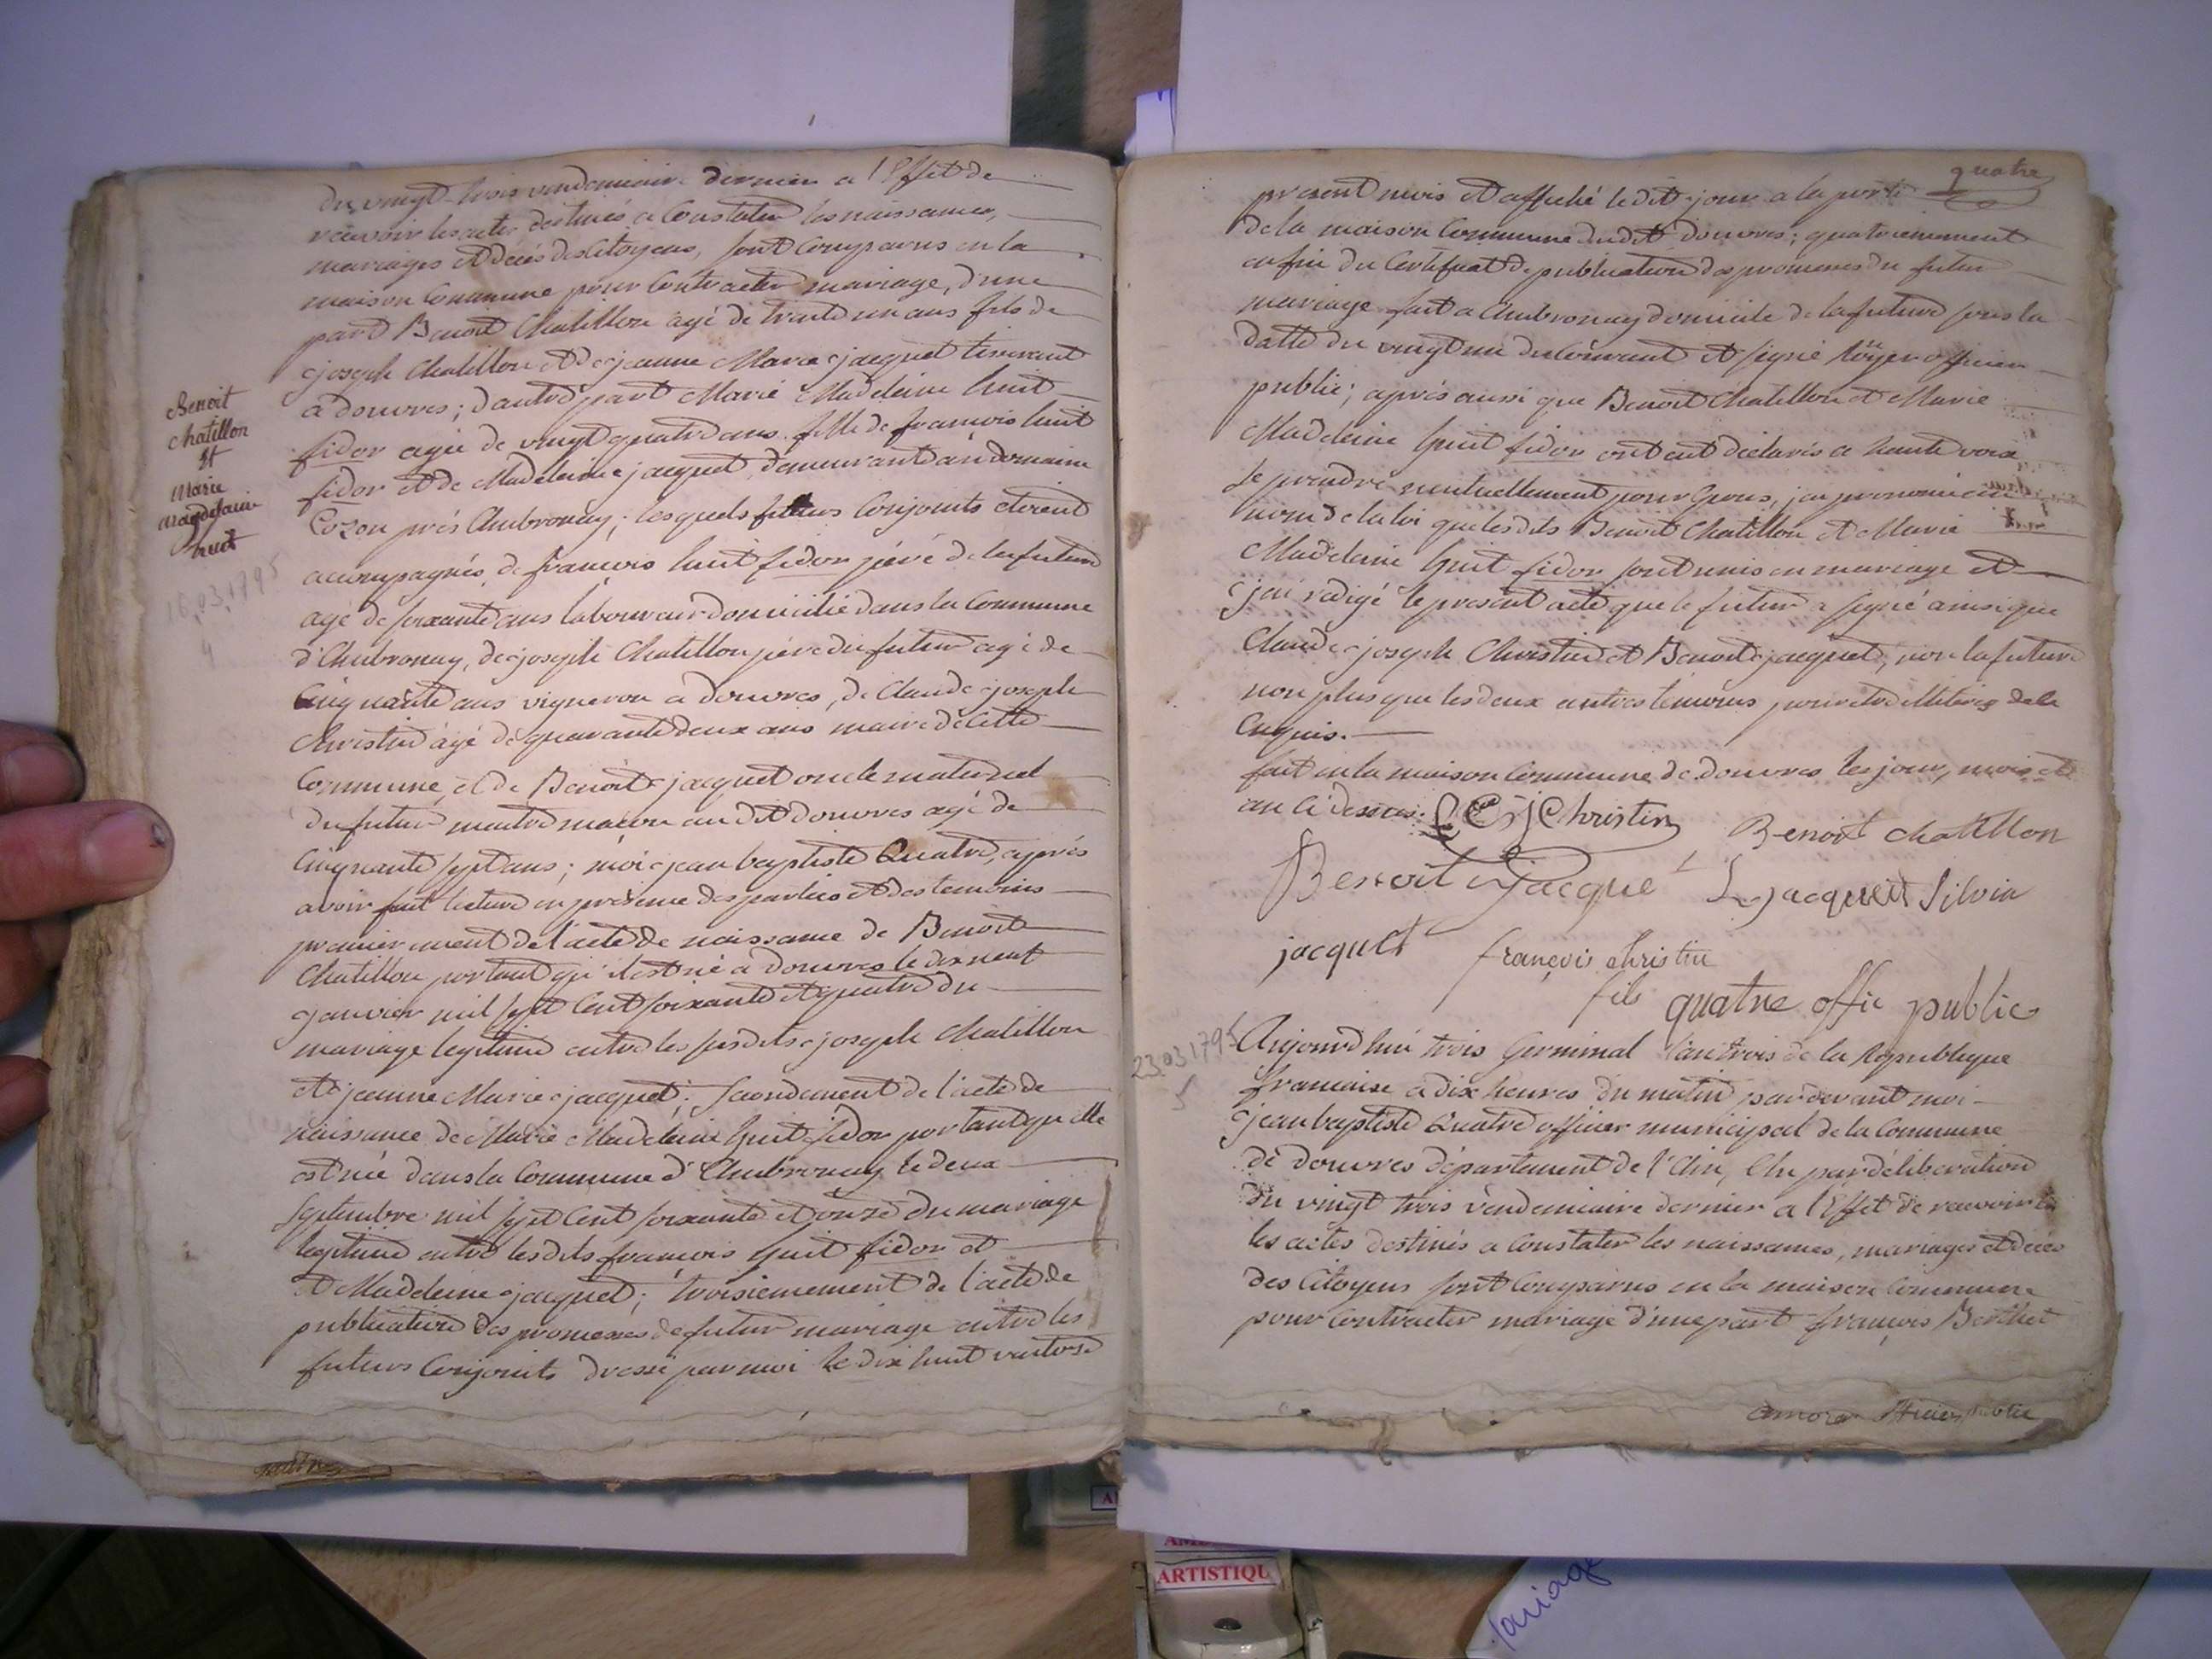 du vingt trois vendemiaire dernier a l'Effet de
recevoir les actes destinés a Constater les naissances,
mariages et décés des Citoyens, sont Comparus en la
maison Commune pour Contracter mariage, d'une
part Benoit Chatillon agé de trente un ans fils de
joseph Chatillon et de jeanne Marie jacquet
a douvres; d'autre part Marie Madeleine huit
fidor agée de vingt quatre ans fille de francois huit
fidor et de Madeleine jacquet, demeurant au domaine
Cozon prés Ambronay; lesquels futurs Conjoints etoient
accompagnés de francois huit fidor pére de la future
agé de soixante ans laboureur domicilié dans la Commune
d'Ambronay, de joseph Chatillon pére du futur agé de
Cinquante ans vigneron a douvres, de Claude joseph
Christin agé de quarante deux ans maire de Cette
Commune, et de Benoit jacquet oncle maternel
du futur maitre macon au dit douvres agé de
Cinquante sept ans; moi jean baptiste Quatre, aprés
avoir fait lecture en présence des parties et des temoins
premierement de l'acte de naissance de Benoit
Chatillon portant qu'il est né a douvres le dix neuf
janvier mil sept Cent soixante et quatre du
mariage legitime entre les susdits joseph Chatillon
et jeanne Marie jacquet; secondement de l'acte de
naissance de Marie Madeleine huit fidor portant qu'elle
est née dans la Commune d'Ambronay le deux
septembre mil sept Cent soixante et onze du mariage
legitime entre lesdits francois huit fidor et
et Madeleine jacquet; troisiemement de l'acte de
publication des promesses de futur mariage entre les
futurs Conjoints dressé par moi le dix huit ventose
Benoit
chatillon
et
marie
magdelaine
huit
16.03.1795
4
quatre
present mois et affiché ledit jour a la porte
de la maison Commune dudit douvres; quatriemement
enfin du Certificat de publication des promesses du futur
mariage fait a Ambronay domicile de la future sous la
datte du vingt un du Courant et signé officier
public; aprés aussi que Benoit Chatillon et Marie
Madeleine huit fidor ont eut déclarés a haute voix
se prendre mutuellement pour Epous, j'ai prononcé au
nom de la loi que lesdits Benoit Chatillon et Marie
Madeleine huit fidor sont unis en mariage et
j'ai redigé le present acte que le futur a signé ainsi que
Claude joseph Christin et Benoit jacquet, non la future
non plus que les deux autres temoins pour etre illiterés de ce
Enquis.
fait en la maison Commune de douvres les jour, mois et
an Ci dessus. C j Christin Benoit chatillon
Benoit Jacque jacquet Silvin
jacquet françois christin
fils quatre offic public
23.03.1795
5
Aujourd'hui trois Germinal l'an trois de la Republique
francaise a dix heures du matin pardevant moi
jean baptiste Quatre officier municipal de la Commune
de douvres département de l'Ain, Elu par déliberation
du vingt trois vendemiaire dernier a l'Effet de recevoir
les actes destinés a Constater les naissances, mariages et décés
des Citoyens sont Comparus en la maison Commune
pour Contracter mariage d'une part françois Berthet
officier public
ARTISTIQU
Mariage